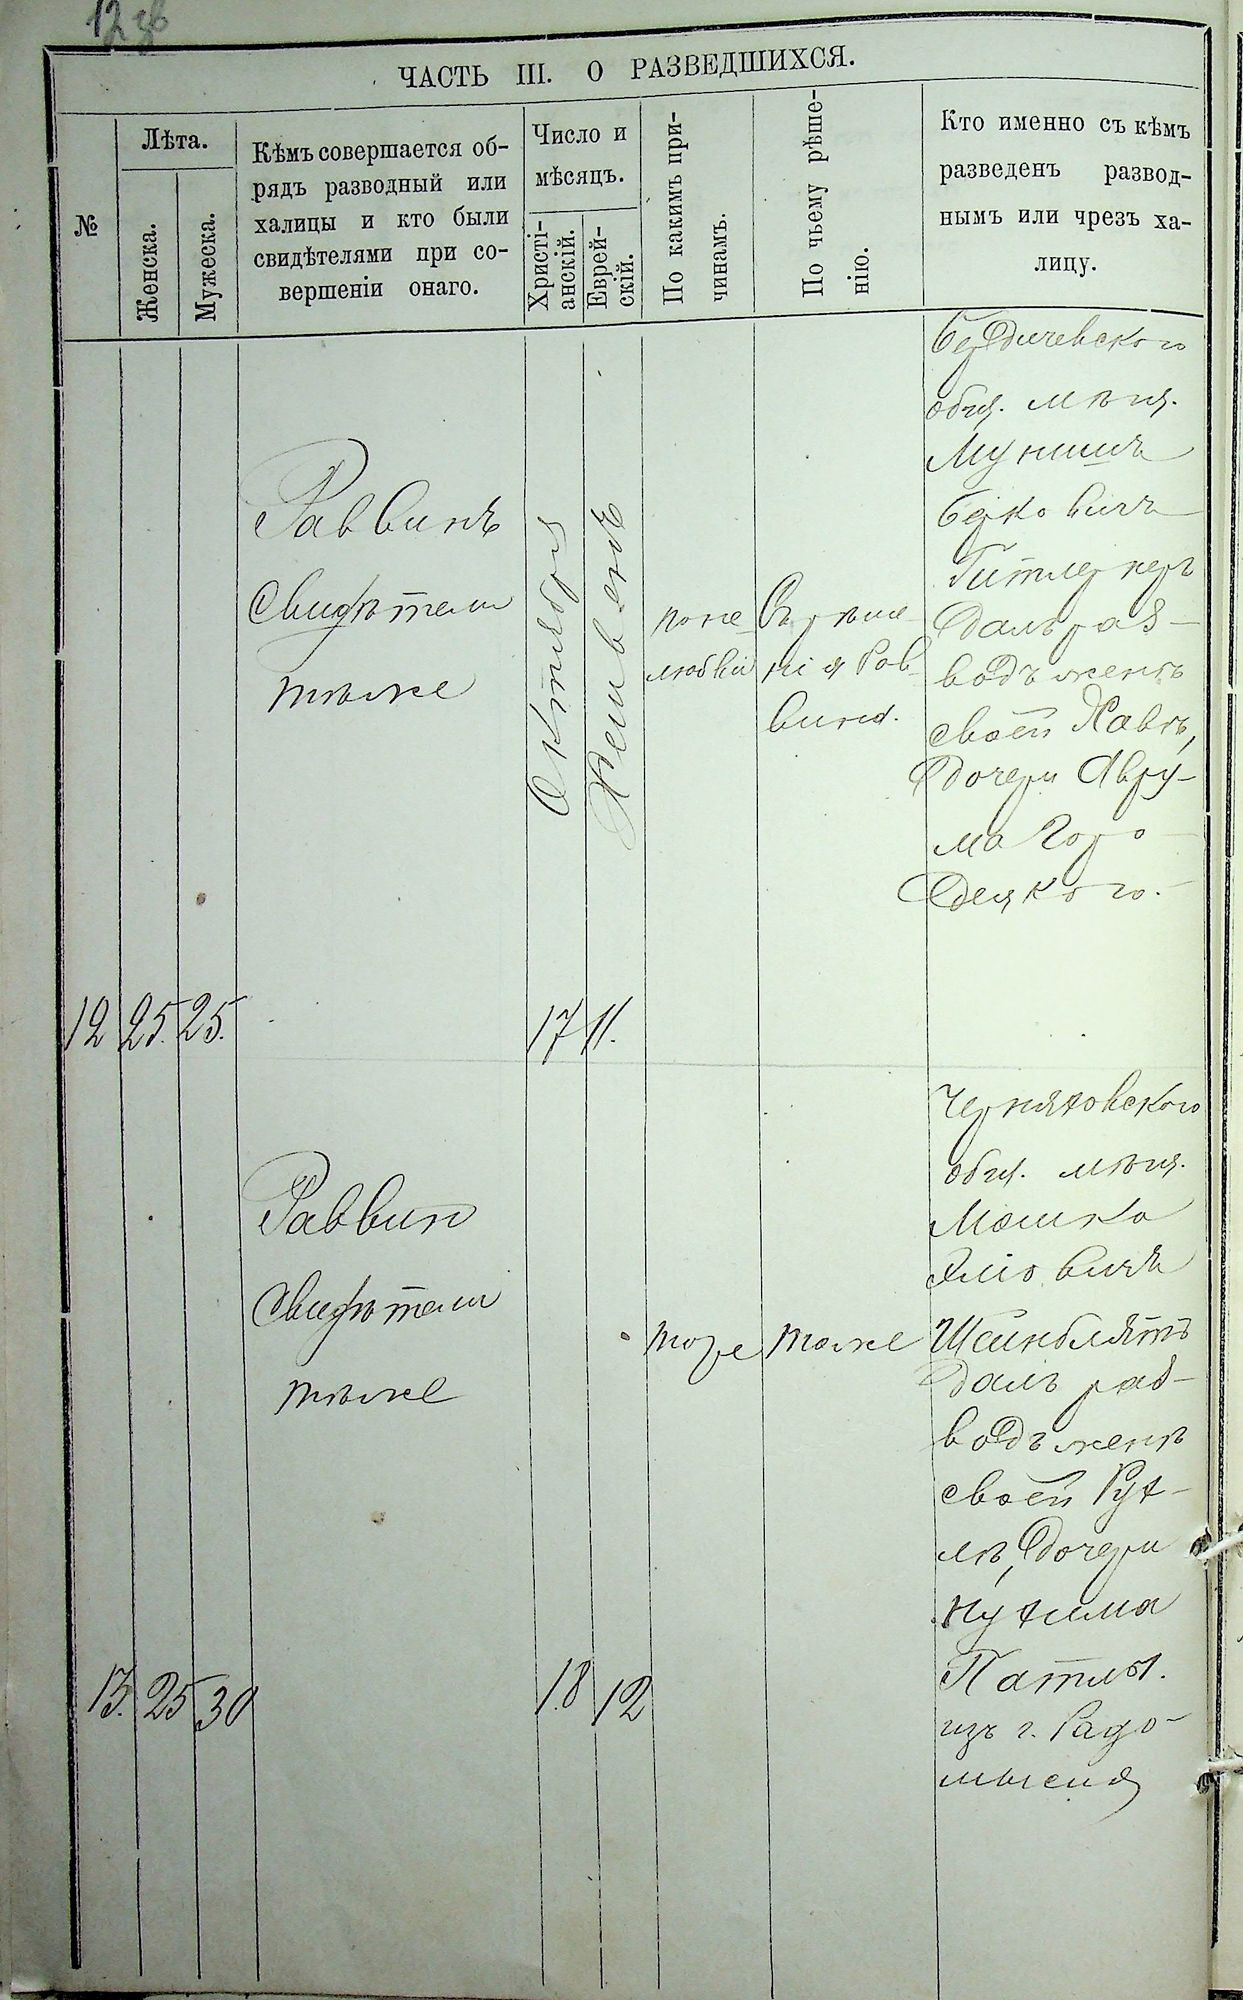 12 зв
ЧАСТЬ III. О РАЗВЕДШИХСЯ.
№
Лѣта.
Женска.
Мужеска.
Кѣмъ совершается об-
рядъ разводный или
халицы и кто были
свидѣтелями при со-
вершеніи онаго.
Число и
мѣсяцъ.
Христі-
анскій.
Еврей-
скій.
По какимъ при-
чинамъ.
По чьему рѣше-
нію.
Кто именно съ кѣмъ
разведенъ развод-
нымъ или чрезъ ха-
лицу.
12
25.
25.
Раввинъ
свидѣтели
тѣже
Октября
17
Хешвенъ
11.
по не-
любви
Въ рѣше-
нія Рав-
вина.
Бердичевского
общ. мѣщ.
Мунишъ
Берковичъ
Гитлернеръ
далъ раз-
водъ женѣ
своей Хавѣ,
дочери Авру-
ма Горо-
децкого.
13.
25
30
Раввин
свидѣтели
тѣже
18
12
тоже
тоже
Черняховского
общ. мѣщ.
Мошко
Элiовичъ
Шейнблятъ
далъ раз-
водъ женѣ
своей Рух-
лѣ, дочери
Нухима
Патлы.
изъ г. Радо-
мысля